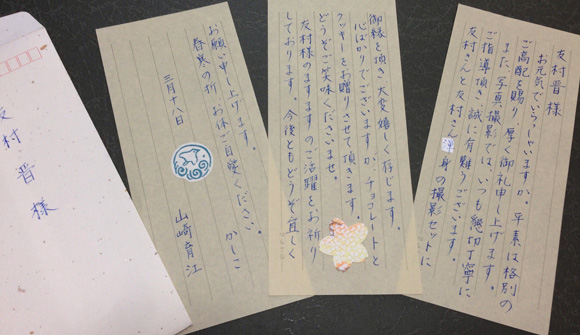 友村晋様
お元気でいらっしゃいますか。平素は格別の
ご高配を賜り、厚く御礼申し上げます。
また、写真撮影では、いつも懇切丁寧に
ご指導頂き、誠に有難うございます。
友村さんと友村さん 身の撮影セットに
御縁を頂き、大変嬉しく存じます。
心ばかりでございますが、チョコレートと
クッキーをお贈りさせて頂きます。
どうぞご笑味くださいませ。
友村様のますますのご活躍をお祈り
しております。今後ともどうぞ宜しく
お願い申し上げます。
春暖の折、お体ご自愛ください。
かしこ
三月十八日
山崎育江
友村晋様